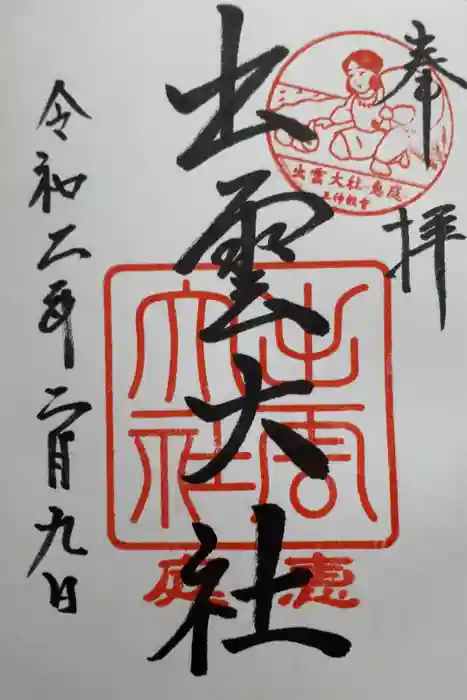 奉拝
出雲大社・恵庭
出雲大社
出雲
大社
恵庭
令和二年二月九日